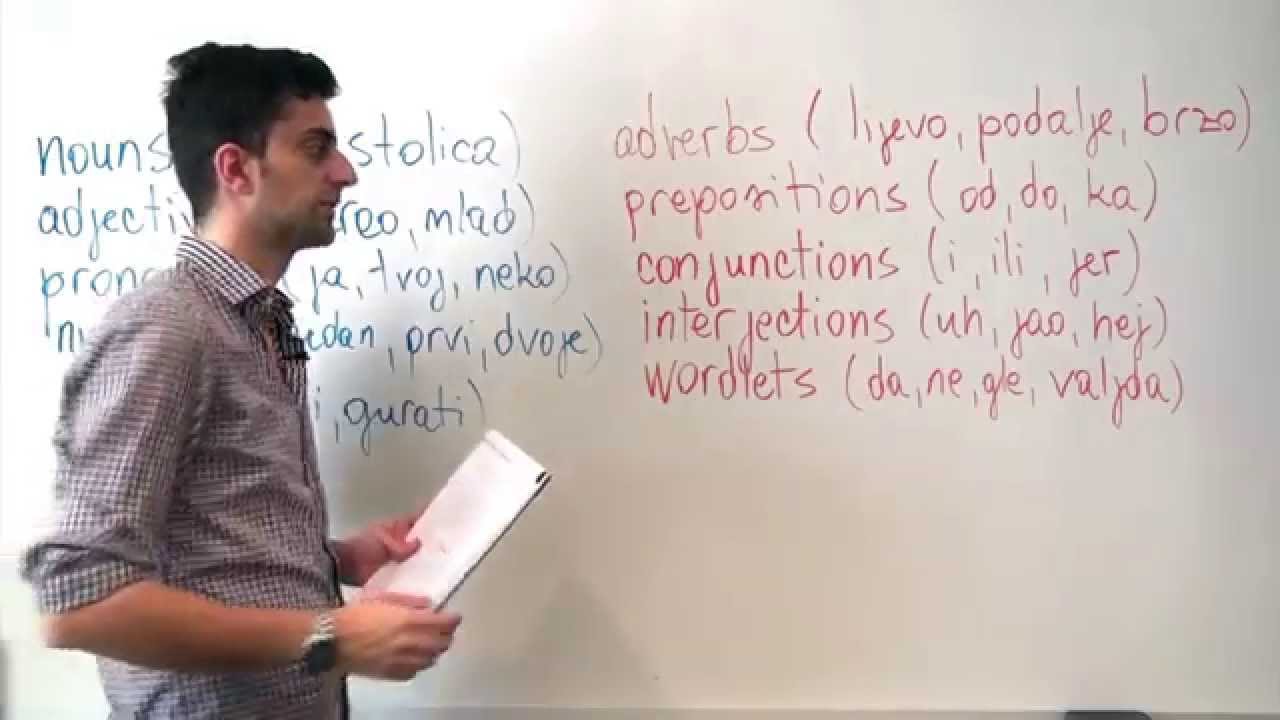 nouns stolica)
adjectiv , mlad)
(ja, tvoj, neko)
, prvi, dvoje)
, gurati)
adverbs ( lijevo, podalje, brzo)
prepositions ( od, do, ka)
conjunctions (i, ili, jer)
interjections (uh, jao, hej)
wordlets (da, ne, gle, valjda)